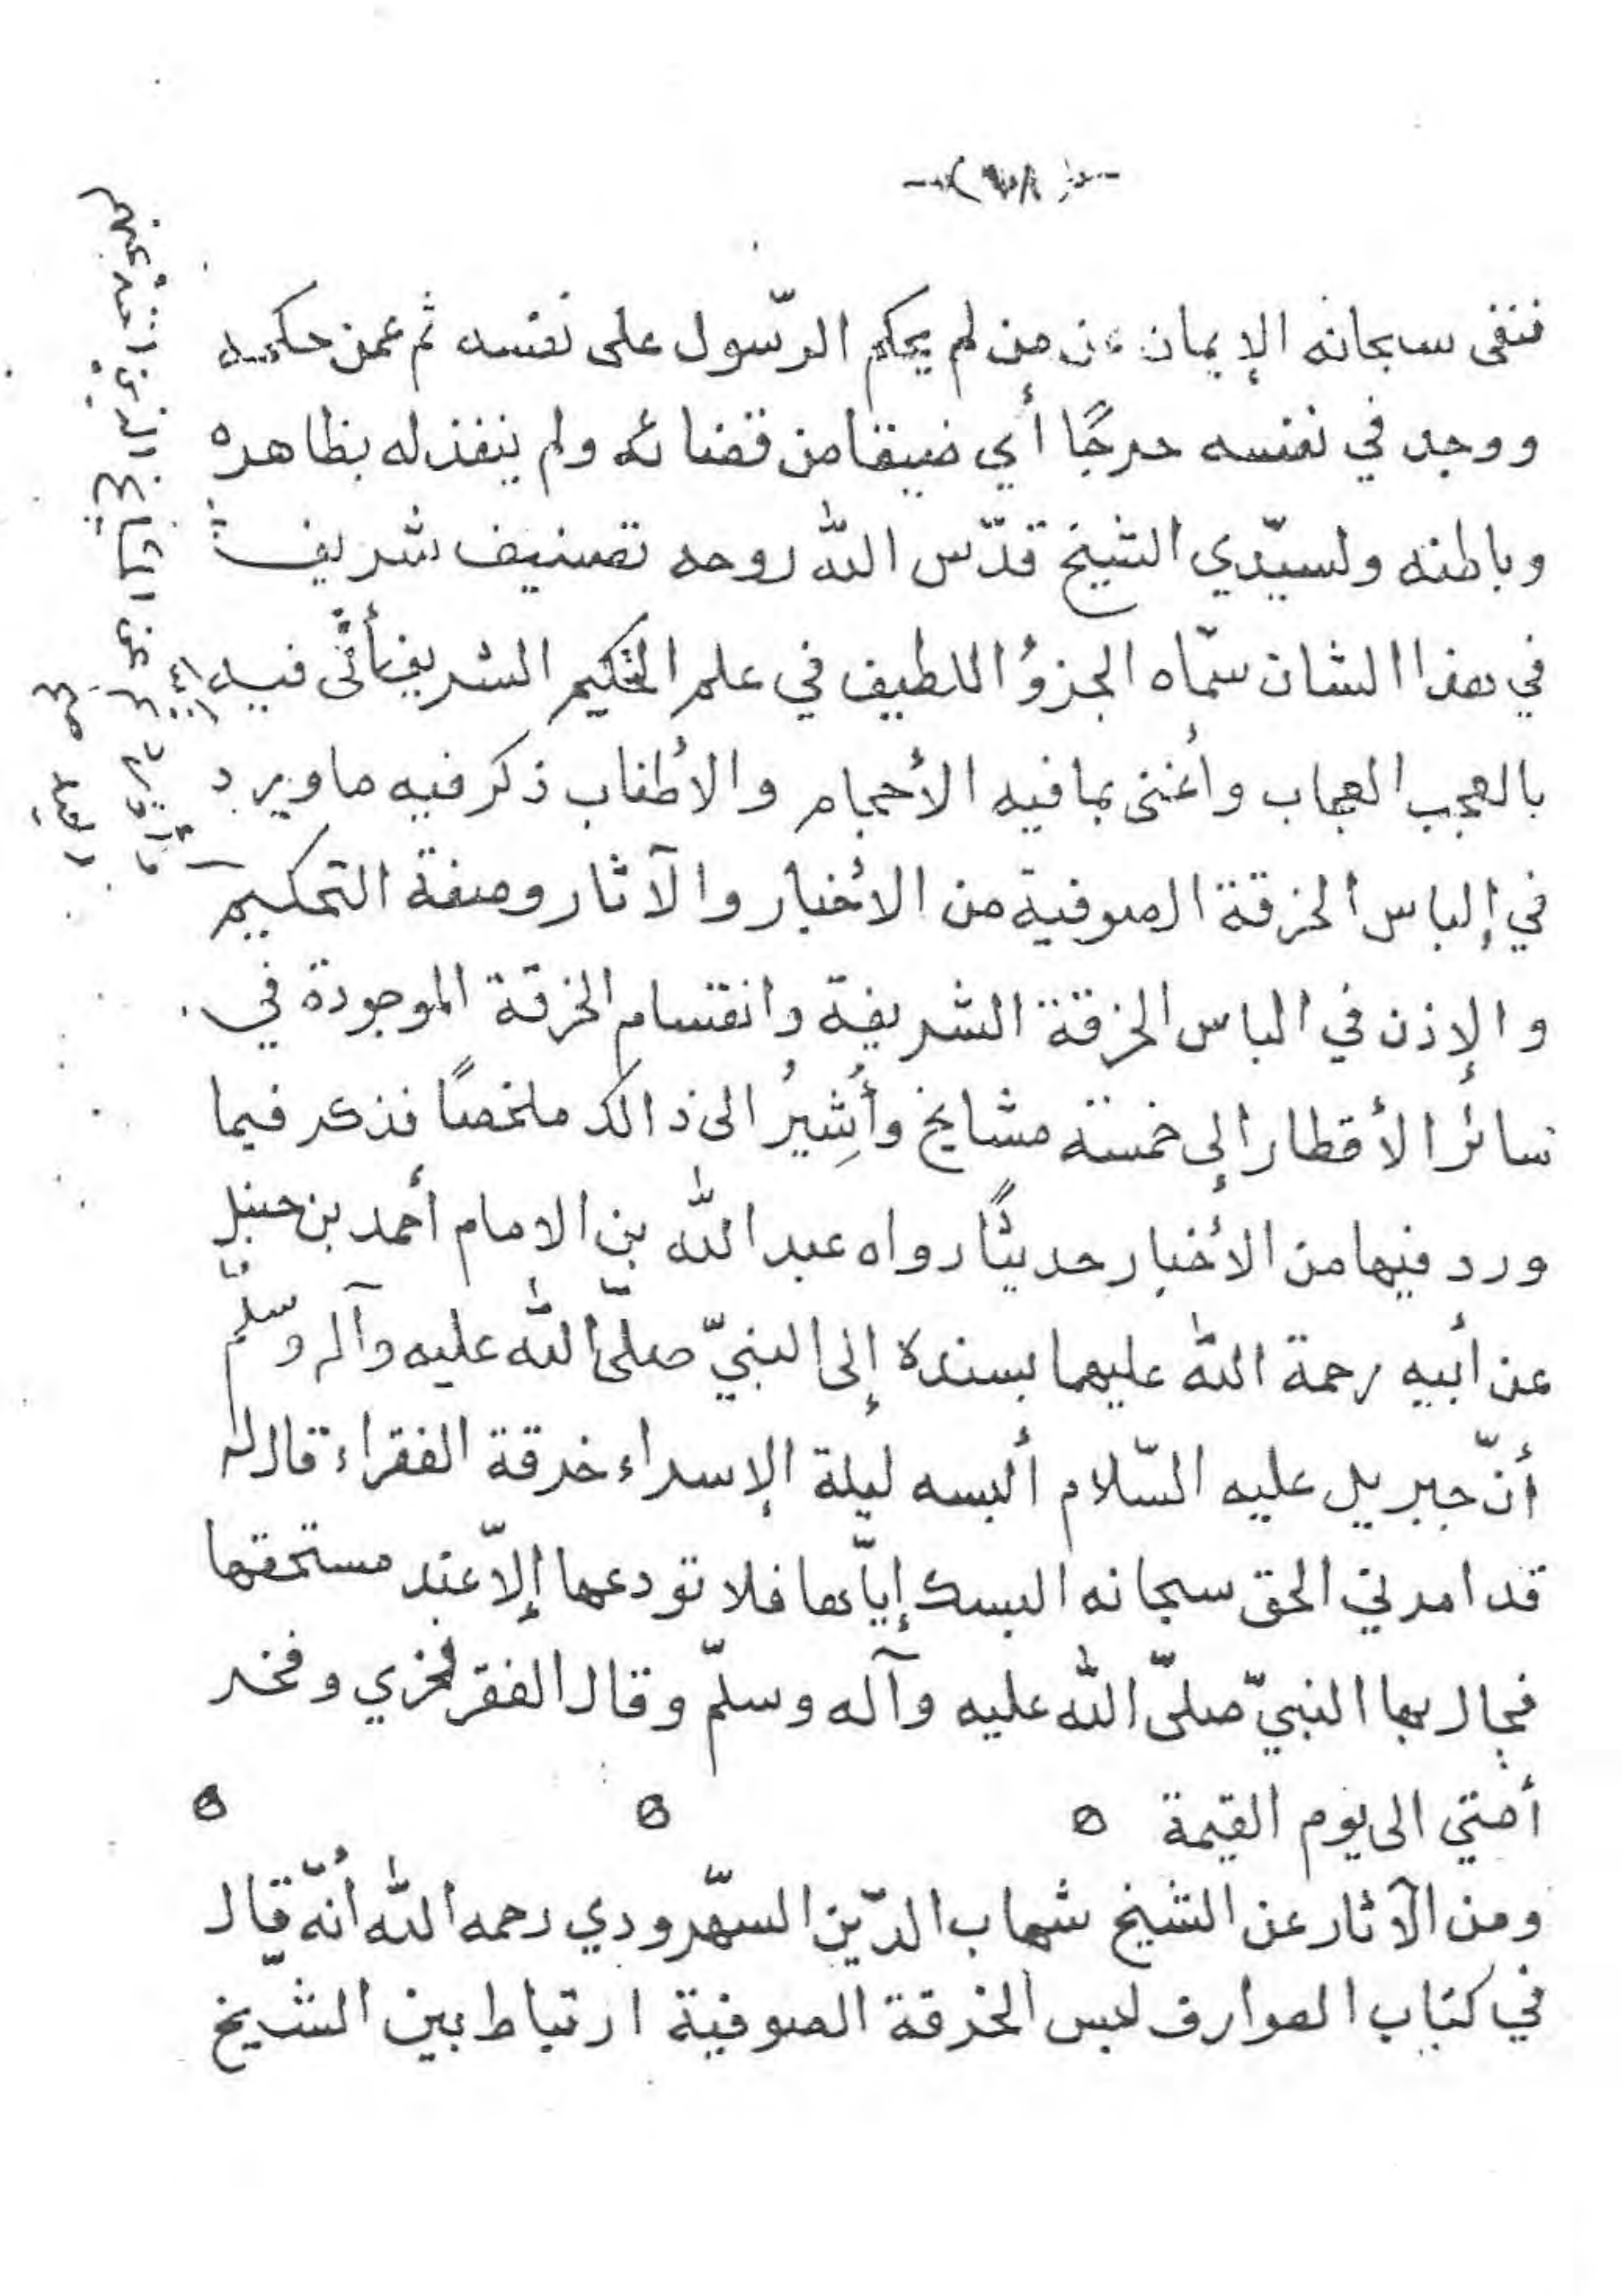 فنفى سبحانه الإيمان عن من لم يحكم الرّسول على نفسه ثم عمن حكمه
ووجد في نفسه حرجًا أي ضيقا من قضائه ولم ينفذ له بظاهره
وباطنه ولسيّدي الشيخ قدّس اللّه روحه تصنيف شريف
في هذا الشان سمّاه الجزؤ اللطيف في علم التحكيم الشريف أتى فيه
بالعجب العجاب وأغنى بما فيه الأحجام والأطناب ذكر فيه ما ويرد
في إلباس الخرقة الصوفية من الأخبار والآثار وصفة التحكيم
والإذن في الباس الخرقة الشريفة وانقسام الخرقة الموجودة في
سائر الأقطار إلى خمسة مشايخ وأُشِيرُ الى ذالك ملخصًا فذكر فيما
ورد فيها من الأخبار حديثًا رواه عبد اللّه بن الامام أحمد بن حنبل
عن أبيه رحمة اللّه عليهما بسنده إلى النبيّ صلّى اللّه عليه وآله وسلّم
أنّ جبريل عليه السّلام ألبسه ليلة الإسراء خرقة الفقراء قال له
قد امرني الحق سبحانه البسك إيّاها فلا تودعها إلاّ عند مستحقها
فجال بها النبيّ صلّى اللّه عليه وآله وسلّم وقال الفقر فخري وفخر
أمتي الى يوم القيمة
ومن الآثار عن الشيخ شهاب الدّين السّهرودي رحمه اللّه أنّه قال
في كتاب العوارف لبس الخرقة الصوفية ارتباط بين الشيخ